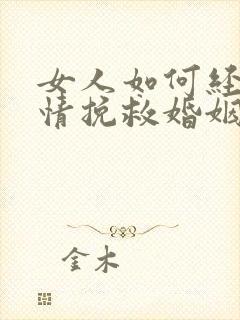 女人如何经
情挽救婚姻
金木